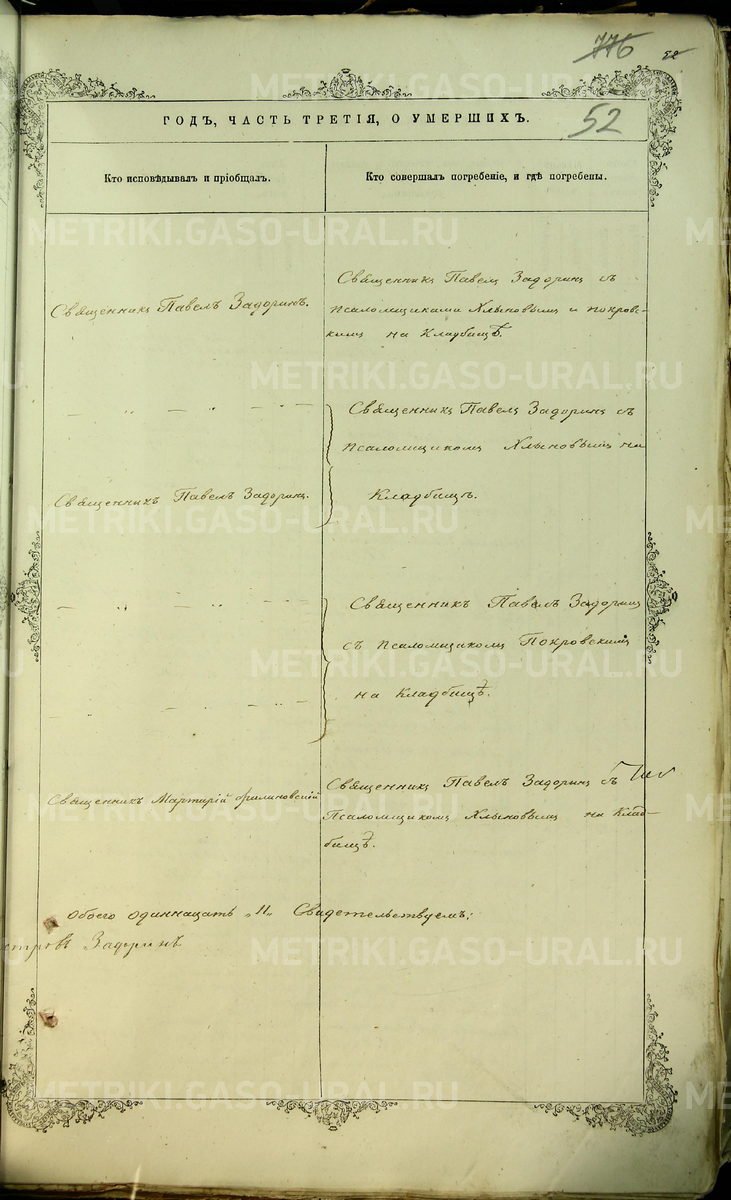 776 52
ГОДЪ, ЧАСТЬ ТРЕТІЯ, О УМЕРШИХЪ.
52
Кто исповѣдывалъ и пріобщалъ.
Кто совершалъ погребеніе, и гдѣ погребены.
Священникъ Павелъ Задоринъ.
Священникъ Павелъ Задоринъ съ
псаломщиками Хлыновымъ и Покров-
скимъ на Кладбищѣ.
Священникъ Павелъ Задоринъ съ
псаломщикомъ Хлыновымъ на
Кладбищѣ.
Священникъ Павелъ Задоринъ.
Священникъ Павелъ Задоринъ
съ псаломщикомъ Покровскимъ
на Кладбищѣ.
Священникъ Мартирій Филиновскій
Священникъ Павелъ Задоринъ съ
Псаломщикомъ Хлыновымъ на Клад-
бищѣ.
Обоего одиннацать „11„ Свидетельствуемъ:
Задоринъ
METRIKI.GASO-URAL.RU